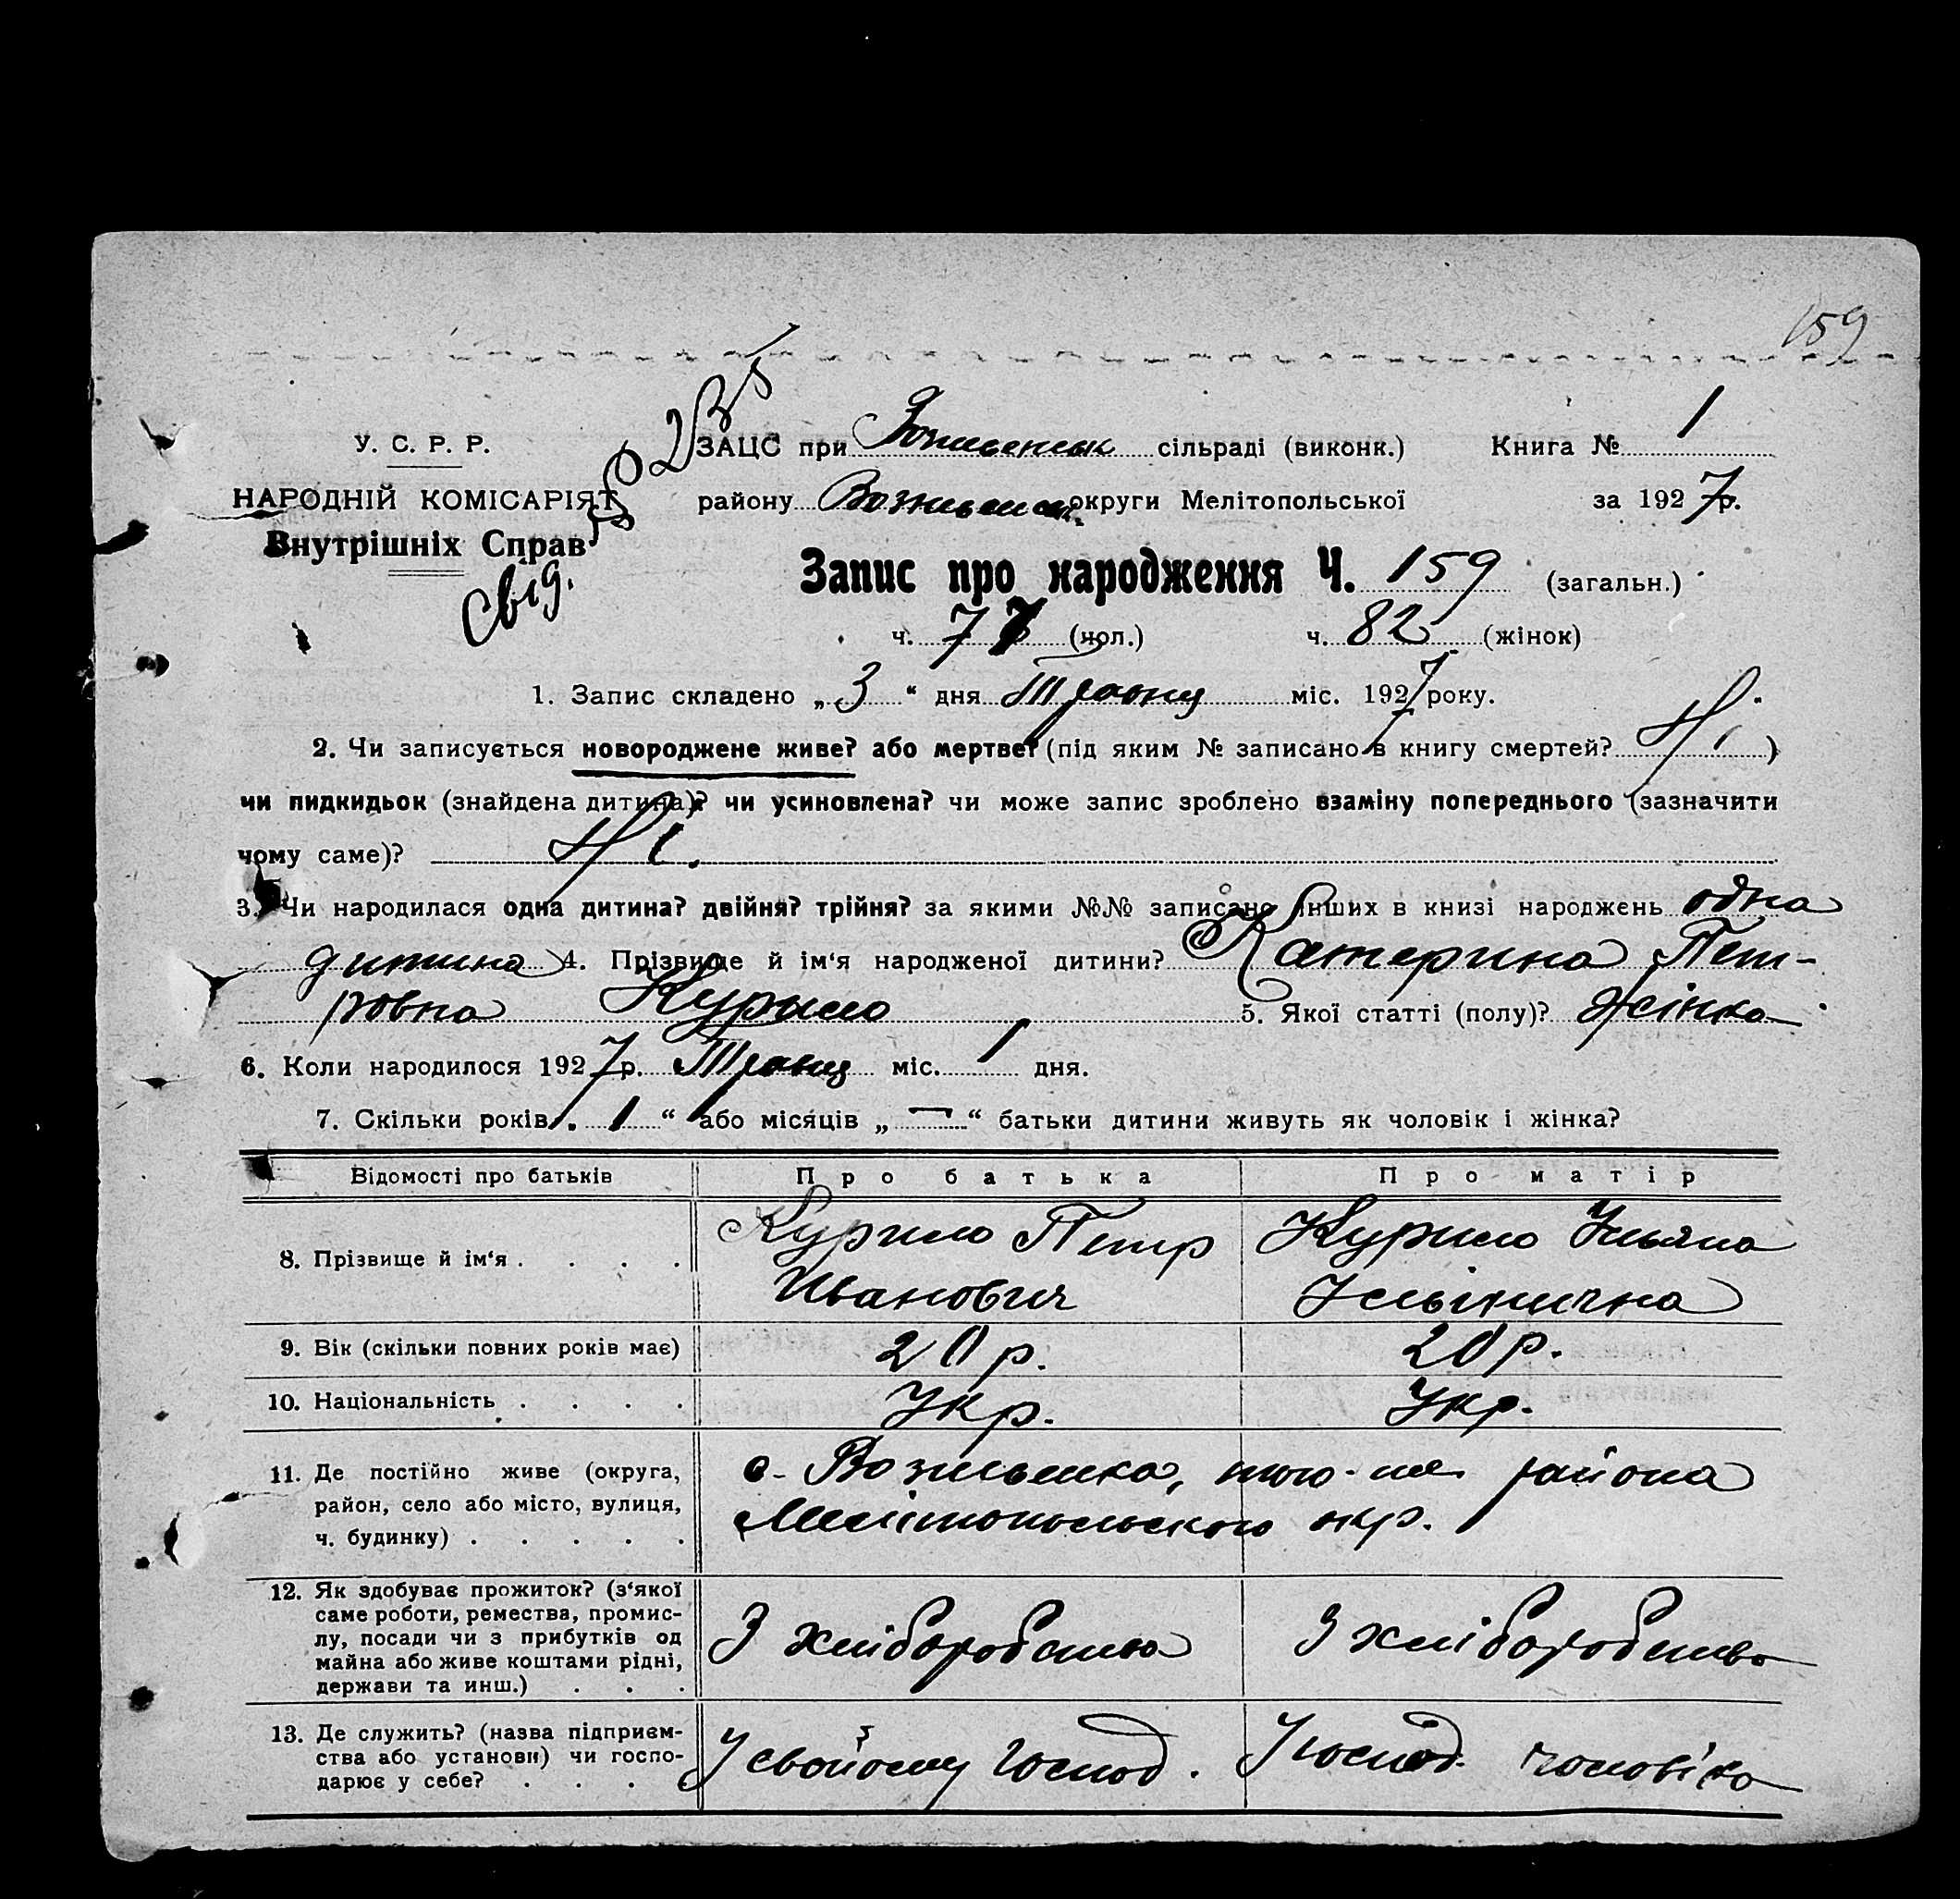 159
У. С. Р. Р.
НАРОДНІЙ КОМІСАРІЯТ
Внутрішніх Справ
Свід.
ЗАЦС при сільраді (виконк.) Книга № 1
району округи Мелітопольської за 1927р.
Запис про народження Ч. 159 (загальн.)
ч. 77 (чол.) ч. 82 (жінок)
1. Запис складено „3“ дня Травня міс. 1927 року.
2. Чи записується новороджене живе? або мертве? (під яким № записано в книгу смертей? Ні)
чи пидкидьок (знайдена дитина)? чи усиновлена? чи може запис зроблено взаміну попереднього (зазначити
чому саме)? Ні.
3. Чи народилася одна дитина? двійня? трійня? за якими №№ записано інших в книзі народжень одна
дитина 4. Прізвище й ім‘я народженої дитини? Катерина Пет-
ровна Курило 5. Якої статті (полу)? Жінка
6. Коли народилося 1927р. Травня міс. 1 дня.
7. Скільки років „1“ або місяців „—“ батьки дитини живуть як чоловік і жінка?
Відомості про батьків Про батька Про матір
8. Прізвище й ім‘я . . . . Курило Петр Курило Ульяна
Иванович
9. Вік (скільки повних років має) 20 р. 20 р.
10. Національність . . . . Укр. Укр.
11. Де постійно живе (округа, района
район, село або місто, вулиця, Мелітопольського окр.
ч. будинку) . . . . .
12. Як здобуває прожиток? (з‘якої
саме роботи, ремества, промис-
лу, посади чи з прибутків од З хліборобства З хліборобства
майна або живе коштами рідні,
держави та инш.) . . .
13. Де служить? (назва підприєм-
ства або установи) чи госпо- У свойому господ. У господ. чоловіка
дарює у себе? . . .